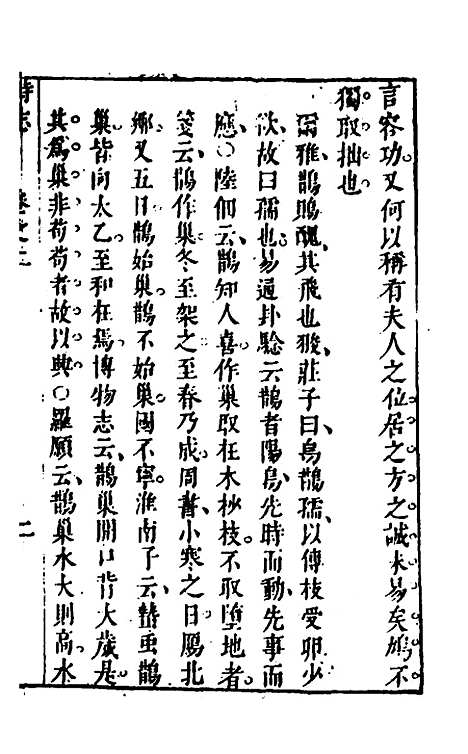 言容功又何以稱有夫人之位居之方之誠未易矣鳩不
獨取拙也
爾雅鵲鵙醜其飛也猣莊子曰烏鵲孺以傳枝受卵少
欲故曰孺也易通卦驗云鵲者陽鳥先時而動先事而
應○陸佃云鵲知人喜作巢取在木杪枝不取墮地者
箋云鵲作巢冬至架之至春乃成周書小寒之日鴈北
鄉又五日鵲始巢鵲不始巢國不寧淮南子云蟄虫鵲
巢皆向太乙至和在焉博物志云鵲巢開口背大歲是
其爲巢非苟苟者故以興○羅願云鵲巢水大則高水
詩志 卷之二 二